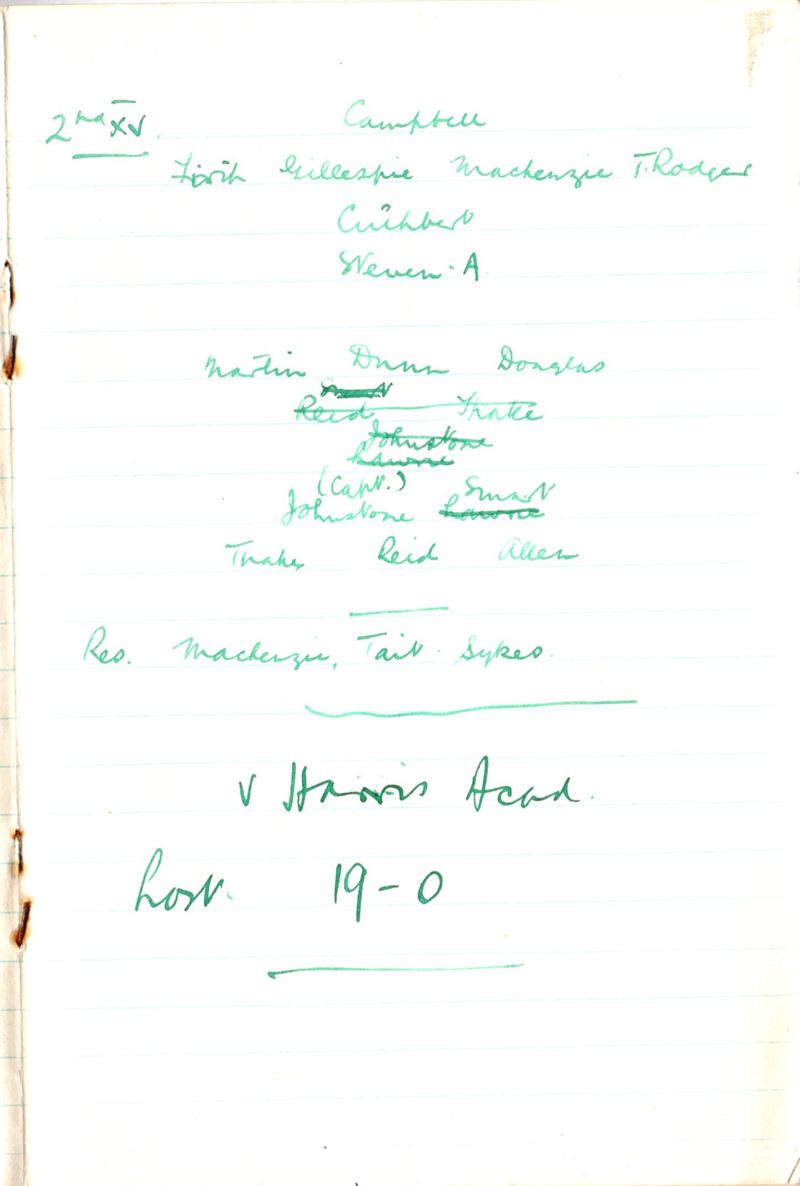 2nd XV. Campbell
Firth Gillespie Mackenzie T. Rodger
Cuthbert
Steven. A
Martin Dunn Douglas
Smart
Reid Thake
Johnstone
Lawrie
(Capt.) Smart
Johnstone Lawrie
Thakes Reid Allen
Res. Mackenzie, Tait. Sykes.
v Harris Acad.
Lost. 19-0